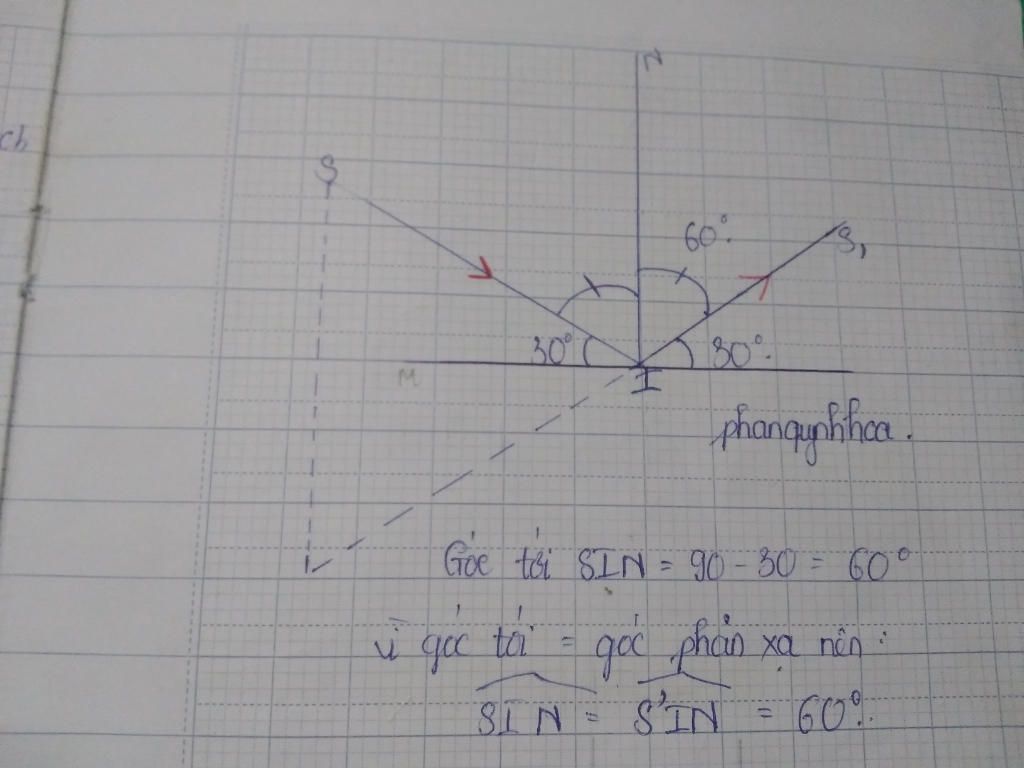 ch
N
S
60°.
S₁
30°
30°.
M
I
phanquynhhoa.
Góc tới SIN = 90 - 30 = 60°
Vì góc tới = góc phản xạ nên :
SIN = S'IN = 60°.